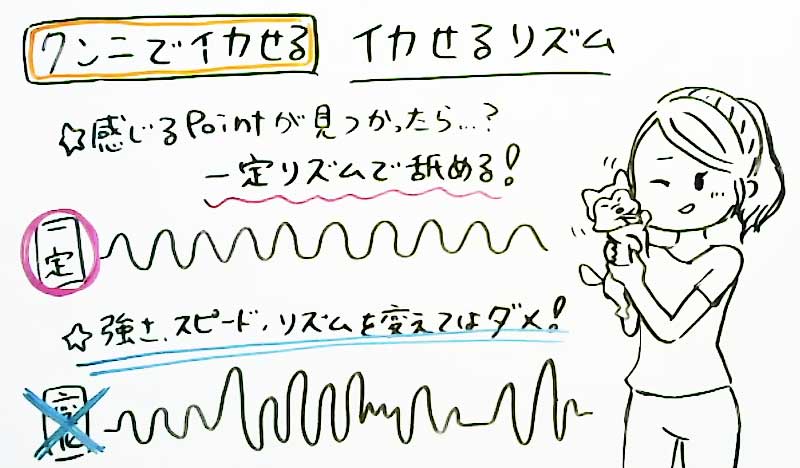 クンニでイカせる イカせるリズム
☆感じるPointが見つかったら…?
一定リズムで舐める!
一定
☆強さ、スピード、リズムを変えてはダメ!
変化